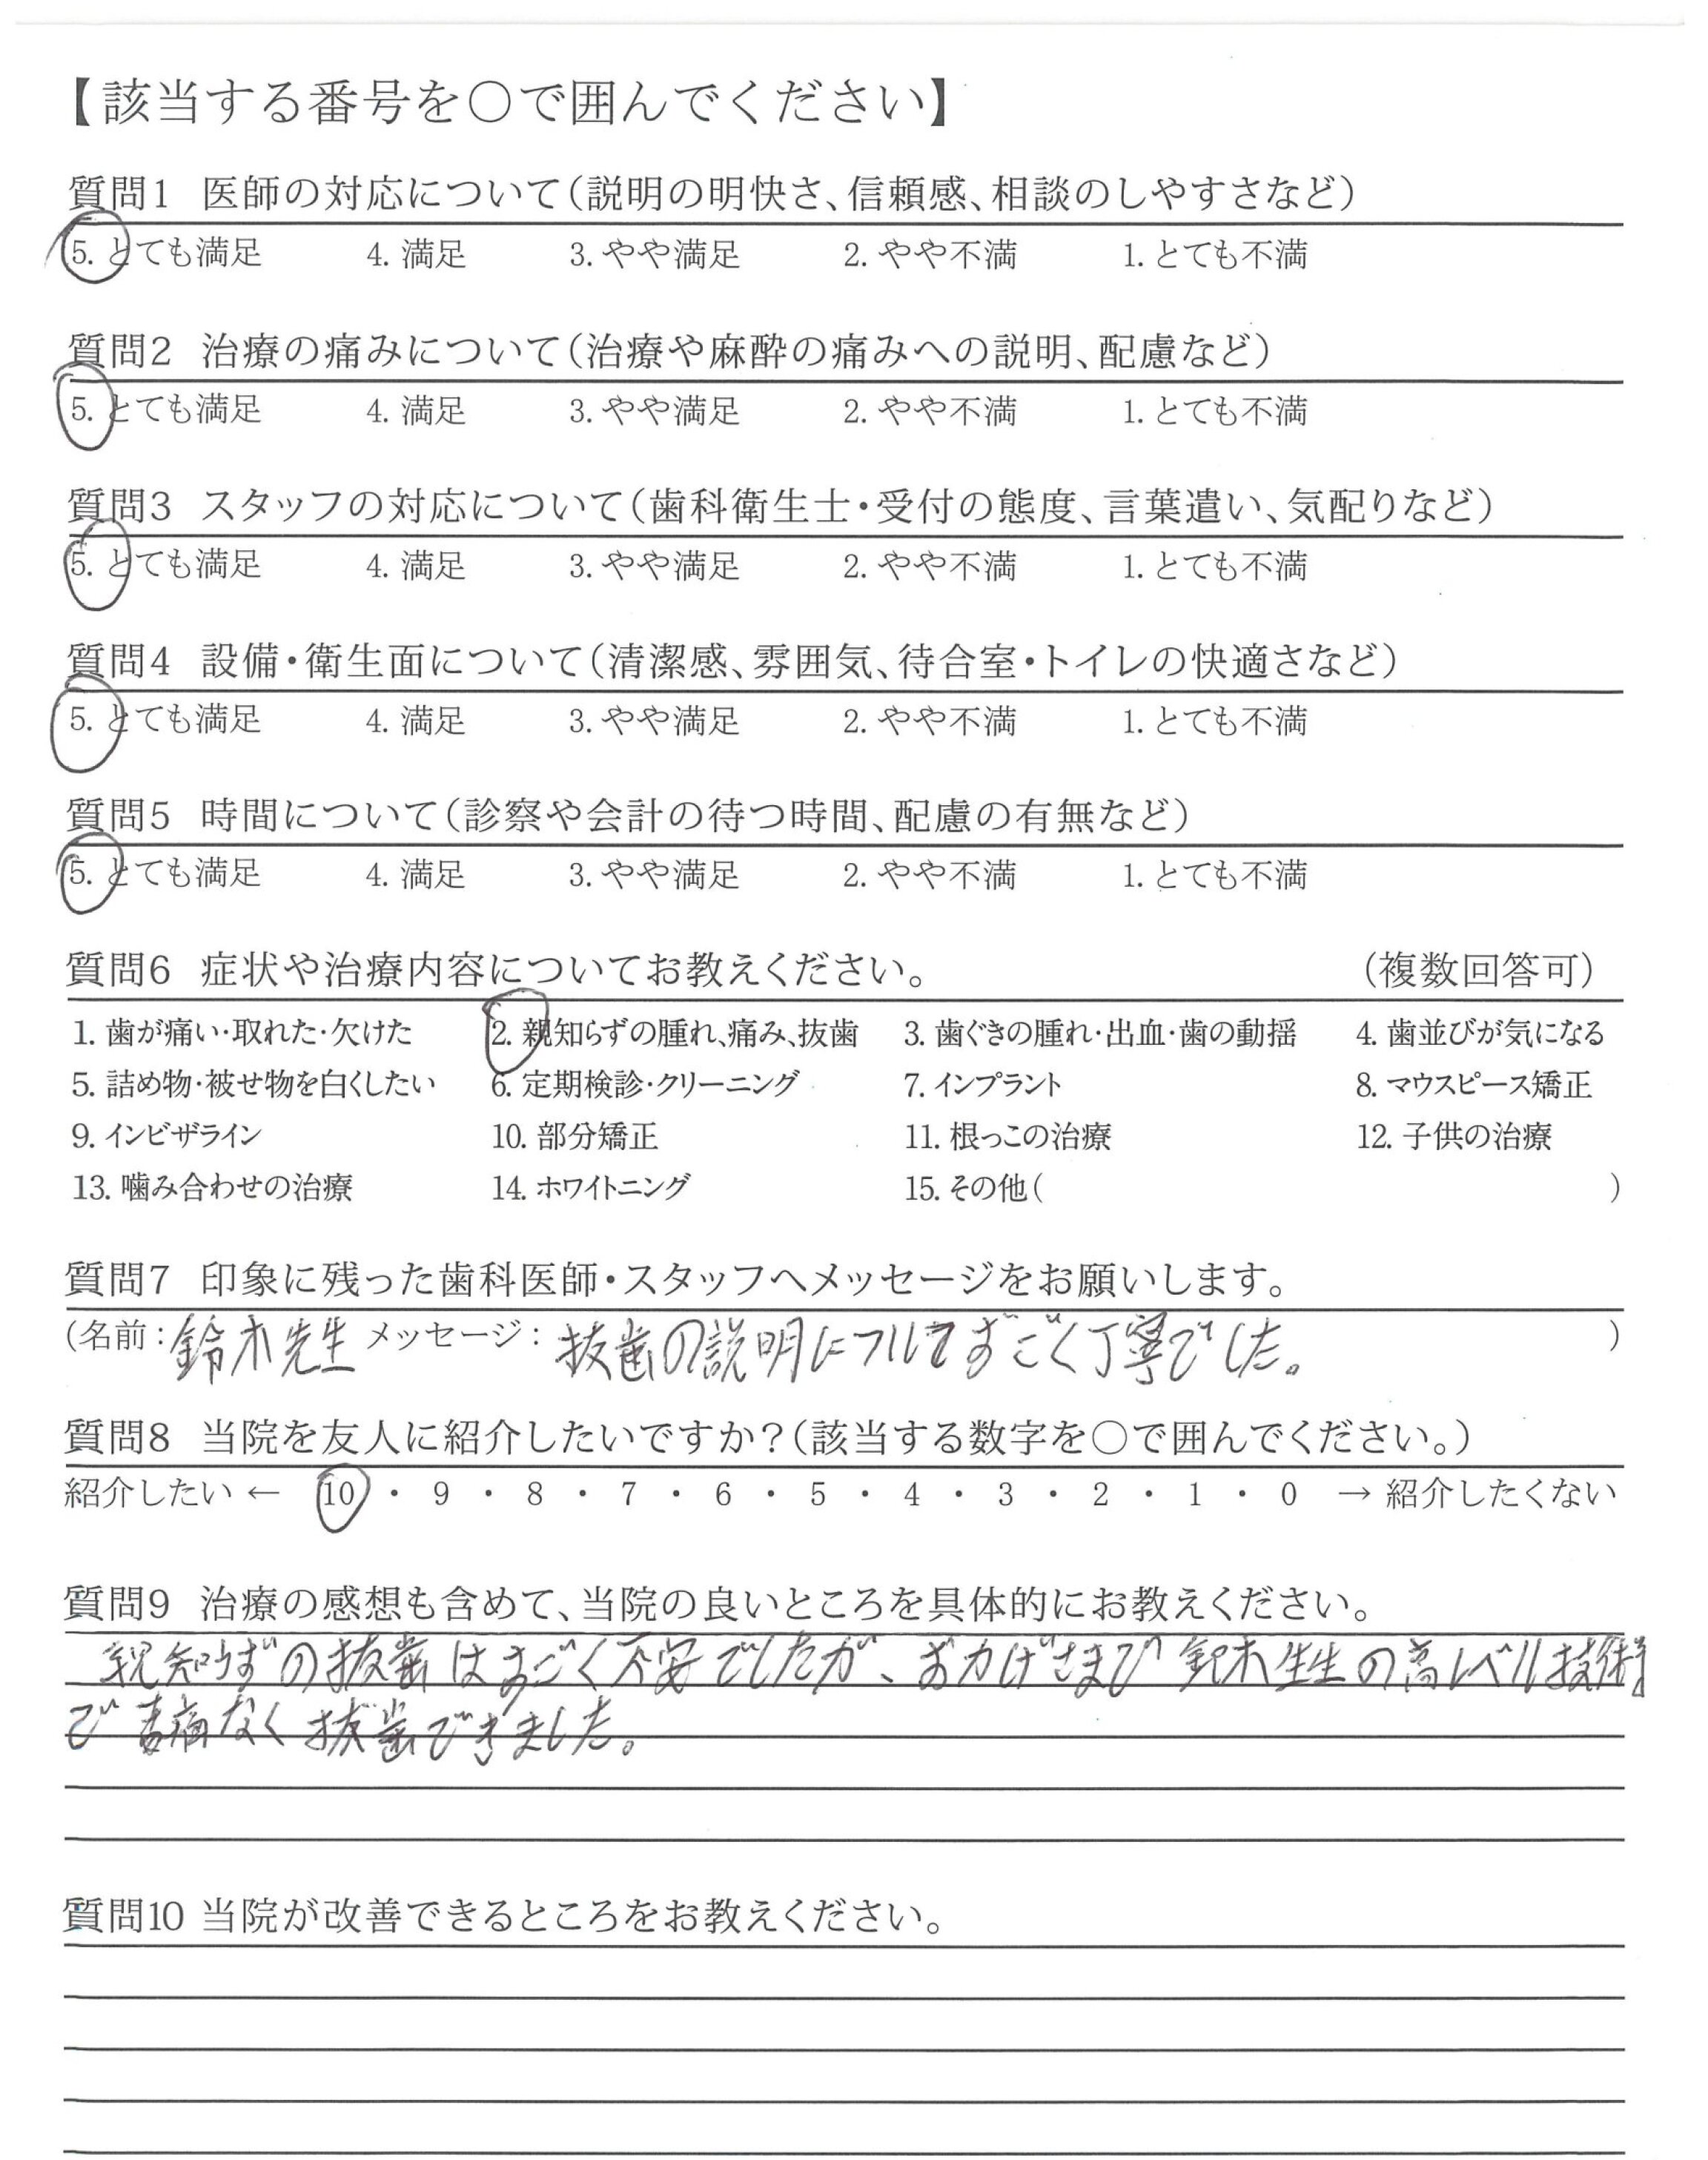 【該当する番号を○で囲んでください】
質問1 医師の対応について(説明の明快さ、信頼感、相談のしやすさなど)
5. とても満足 4. 満足 3. やや満足 2. やや不満 1. とても不満
質問2 治療の痛みについて(治療や麻酔の痛みへの説明、配慮など)
5. とても満足 4. 満足 3. やや満足 2. やや不満 1. とても不満
質問3 スタッフの対応について(歯科衛生士・受付の態度、言葉遣い、気配りなど)
5. とても満足 4. 満足 3. やや満足 2. やや不満 1. とても不満
質問4 設備・衛生面について(清潔感、雰囲気、待合室・トイレの快適さなど)
5. とても満足 4. 満足 3. やや満足 2. やや不満 1. とても不満
質問5 時間について(診察や会計の待つ時間、配慮の有無など)
5. とても満足 4. 満足 3. やや満足 2. やや不満 1. とても不満
質問6 症状や治療内容についてお教えください。 (複数回答可)
1. 歯が痛い・取れた・欠けた 2. 親知らずの腫れ、痛み、抜歯 3. 歯ぐきの腫れ・出血・歯の動揺 4. 歯並びが気になる
5. 詰め物・被せ物を白くしたい 6. 定期検診・クリーニング 7. インプラント 8. マウスピース矯正
9. インビザライン 10. 部分矯正 11. 根っこの治療 12. 子供の治療
13. 噛み合わせの治療 14. ホワイトニング 15. その他( )
質問7 印象に残った歯科医師・スタッフへメッセージをお願いします。
(名前:鈴木先生 メッセージ: 抜歯の説明についてすごく丁寧でした。 )
質問8 当院を友人に紹介したいですか?(該当する数字を○で囲んでください。)
紹介したい ← 10 ・ 9 ・ 8 ・ 7 ・ 6 ・ 5 ・ 4 ・ 3 ・ 2 ・ 1 ・ 0 → 紹介したくない
質問9 治療の感想も含めて、当院の良いところを具体的にお教えください。
親知らずの抜歯はすごく不安でしたが、おかげさまで 鈴木先生の高レベル技術
で苦痛なく抜歯できました。
質問10 当院が改善できるところをお教えください。